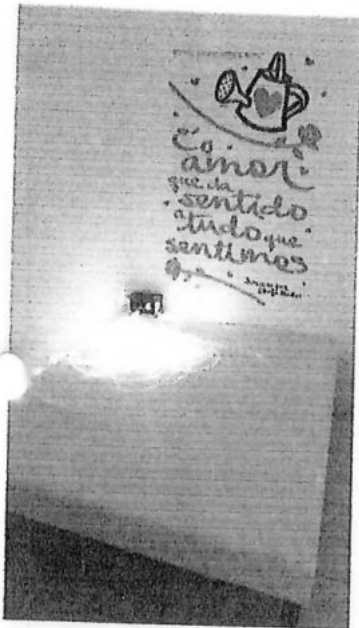 É o
amor
que da
sentido
a
tudo que
sentimos